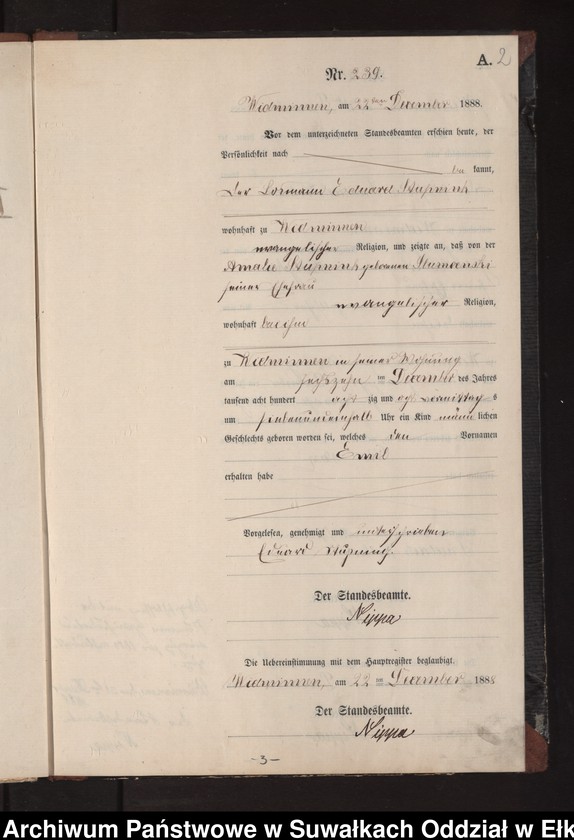 A. 2
Nr. 239.
Widminnen, am 22ten December 1888.
Vor dem unterzeichneten Standesbeamten erschien heute, der
Persönlichkeit nach
be kannt,
der Eduard
wohnhaft zu Widminnen
evangelischer Religion, und zeigte an, daß von der
Amalie geborenen
seiner Ehefrau
evangelischer Religion,
wohnhaft bei ihm
zu Widminnen in seiner Wohnung
am sechszehn ten December des Jahres
tausend acht hundert acht zig und acht Vormittag s
um siebenundeinhalb Uhr ein Kind männ lichen
Geschlechts geboren worden sei, welches den Vornamen
Emil
erhalten habe
Vorgelesen, genehmigt und unterschrieben
Eduard
Der Standesbeamte.
Nippa
Die Uebereinstimmung mit dem Hauptregister beglaubigt.
Widminnen, am 22 ten December 1888
Der Standesbeamte.
Nippa
- 3 -
Archiwum Państwowe w Suwałkach Oddział w Ełk